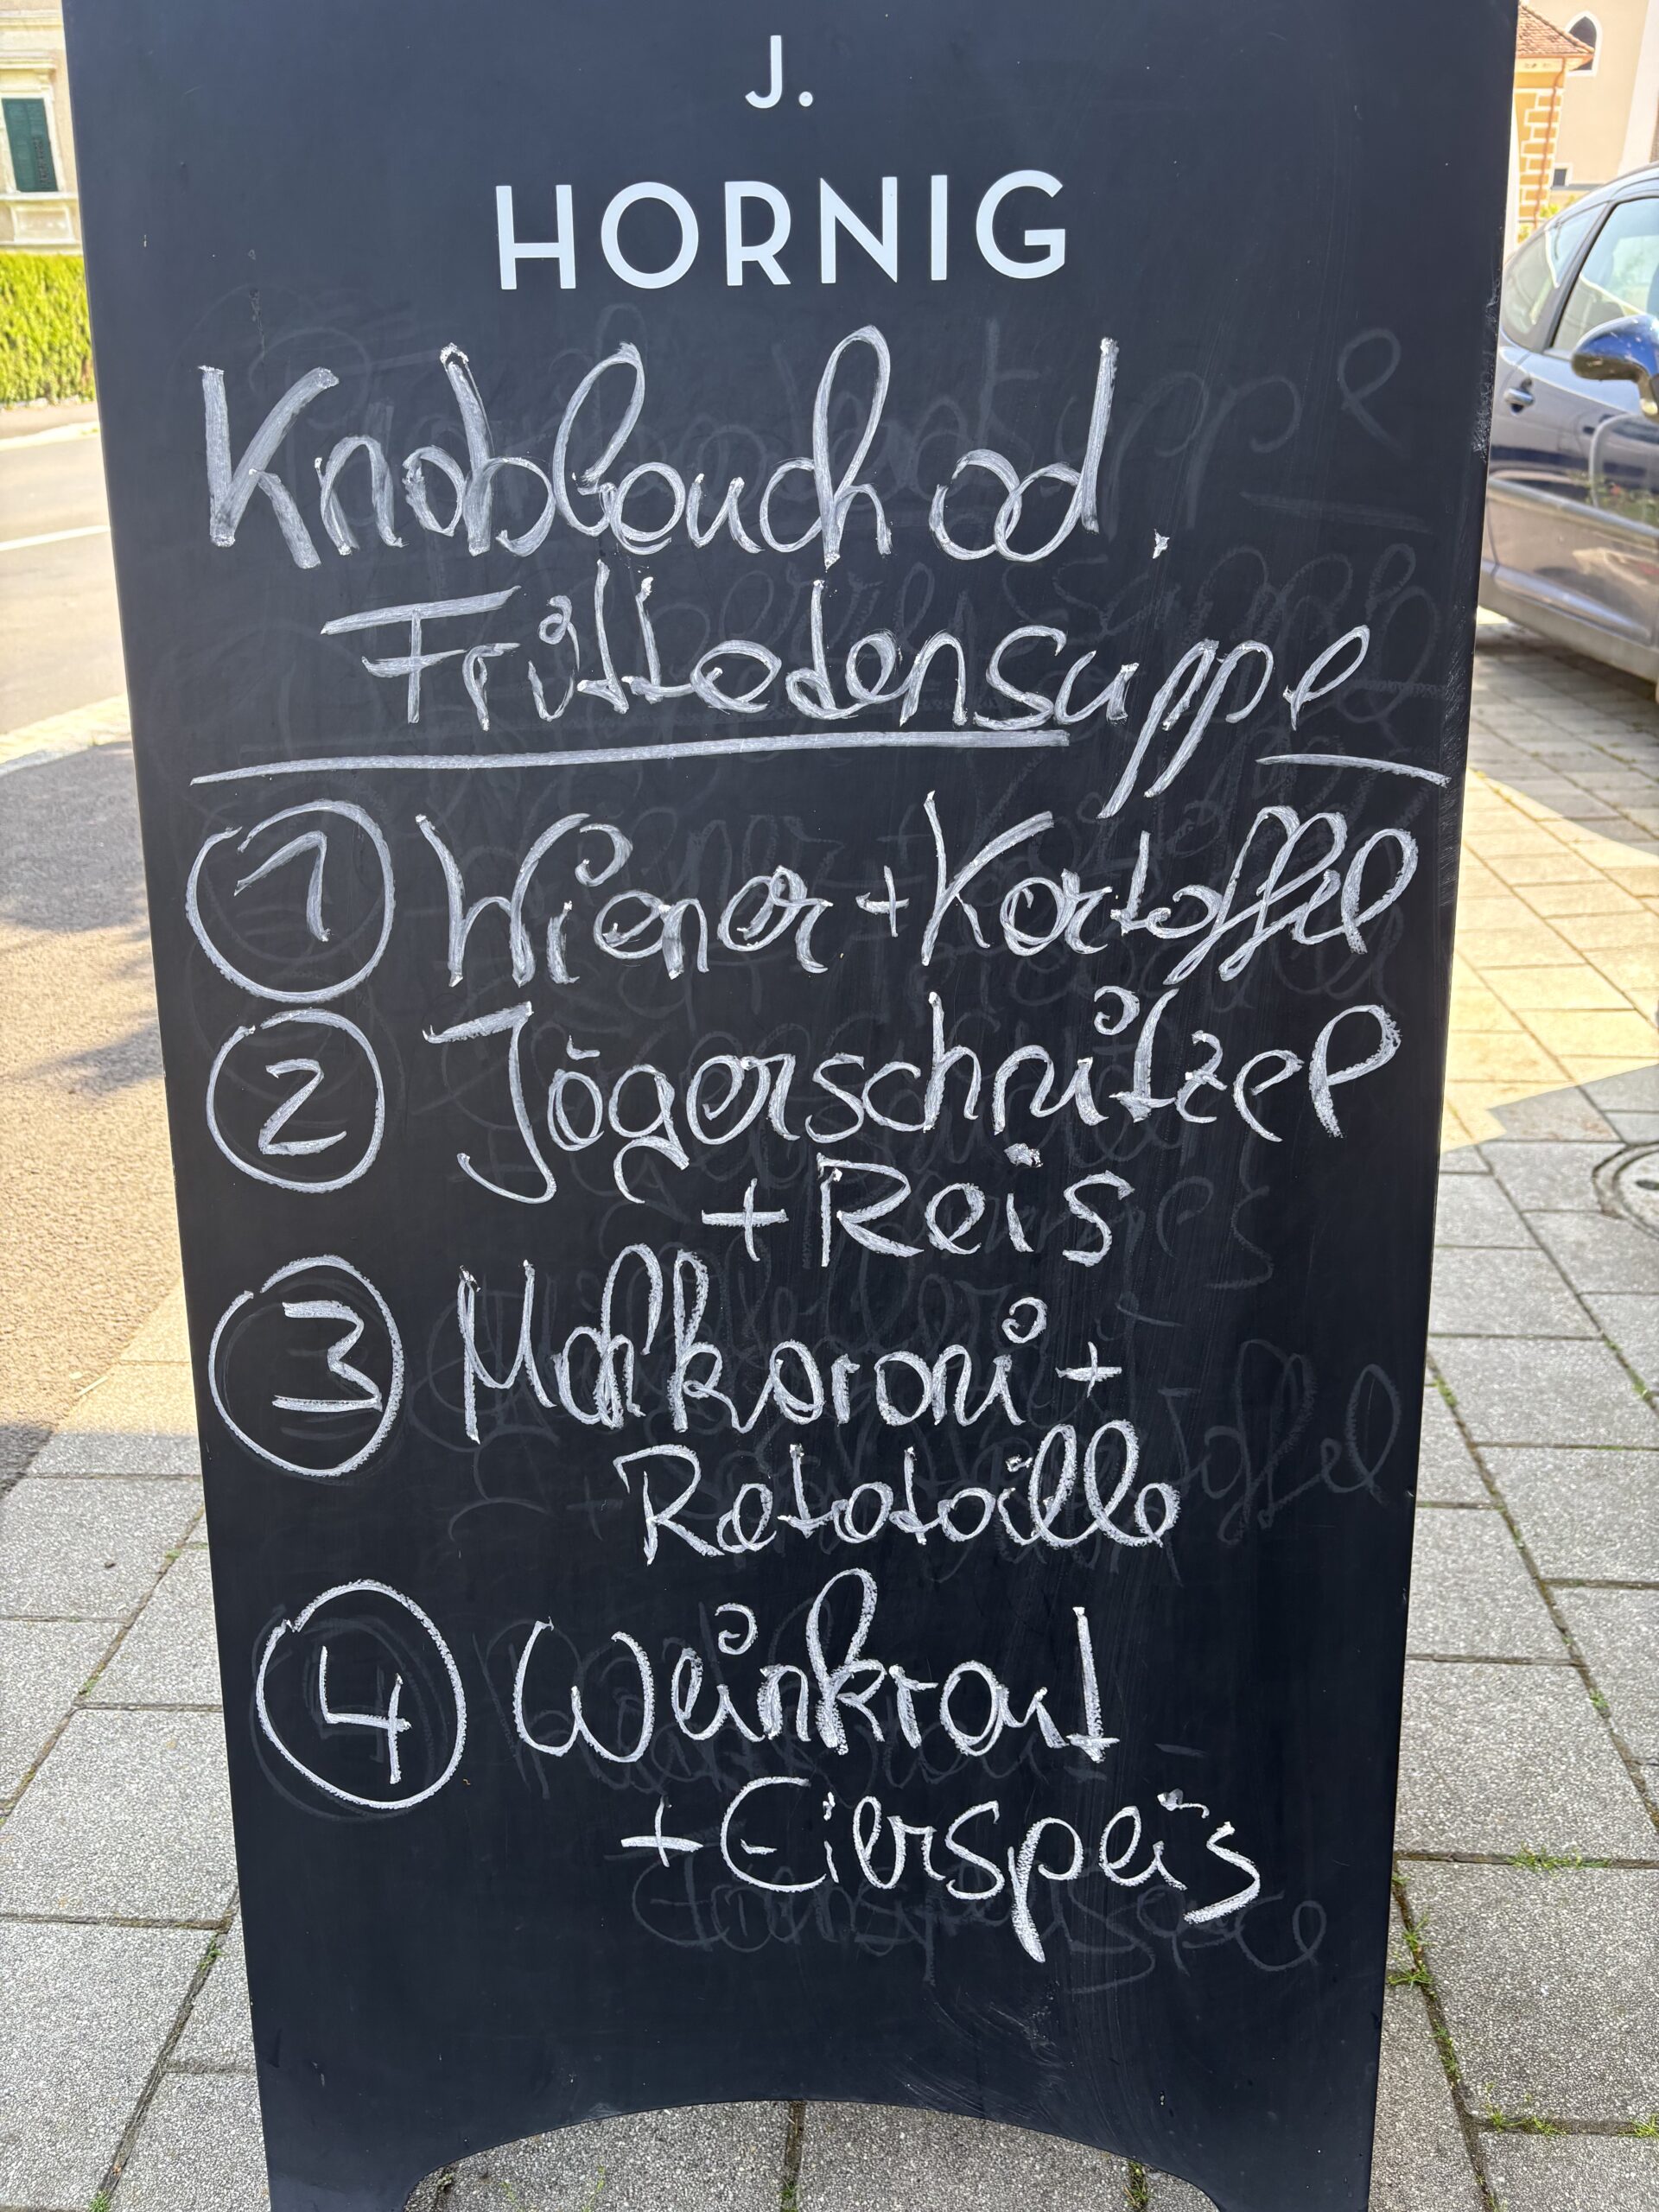 J.
HORNIG
Knoblauch od.
Frittatensuppe
1 Wiener + Kartoffel
2 Jägerschnitzel
+ Reis
3 Makkaroni +
Ratatoille
4 Weinkraut
+ Eierspeis